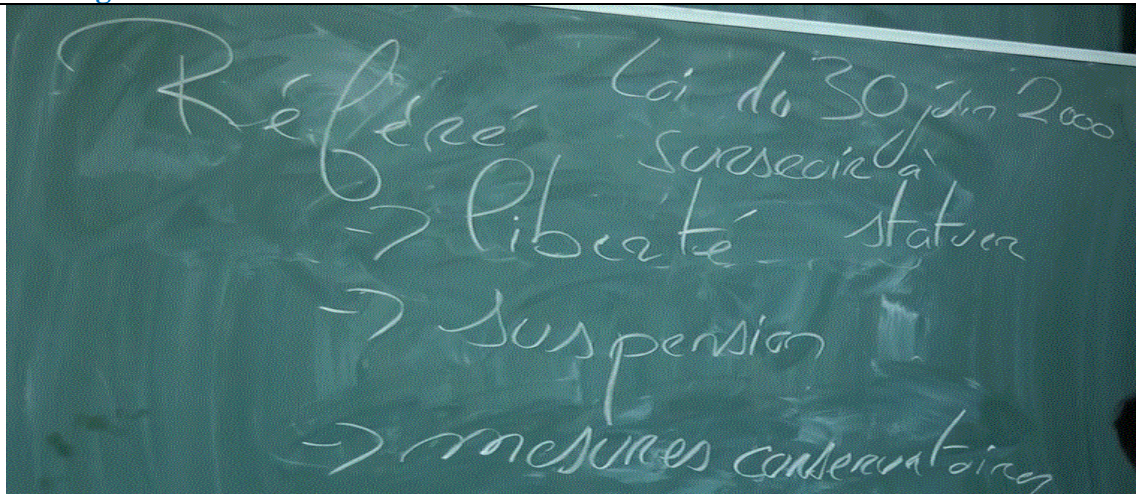 Référé
Loi du 30 juin 2000
surseoir à
statuer
-> liberté
-> suspension
-> mesures conservatoires